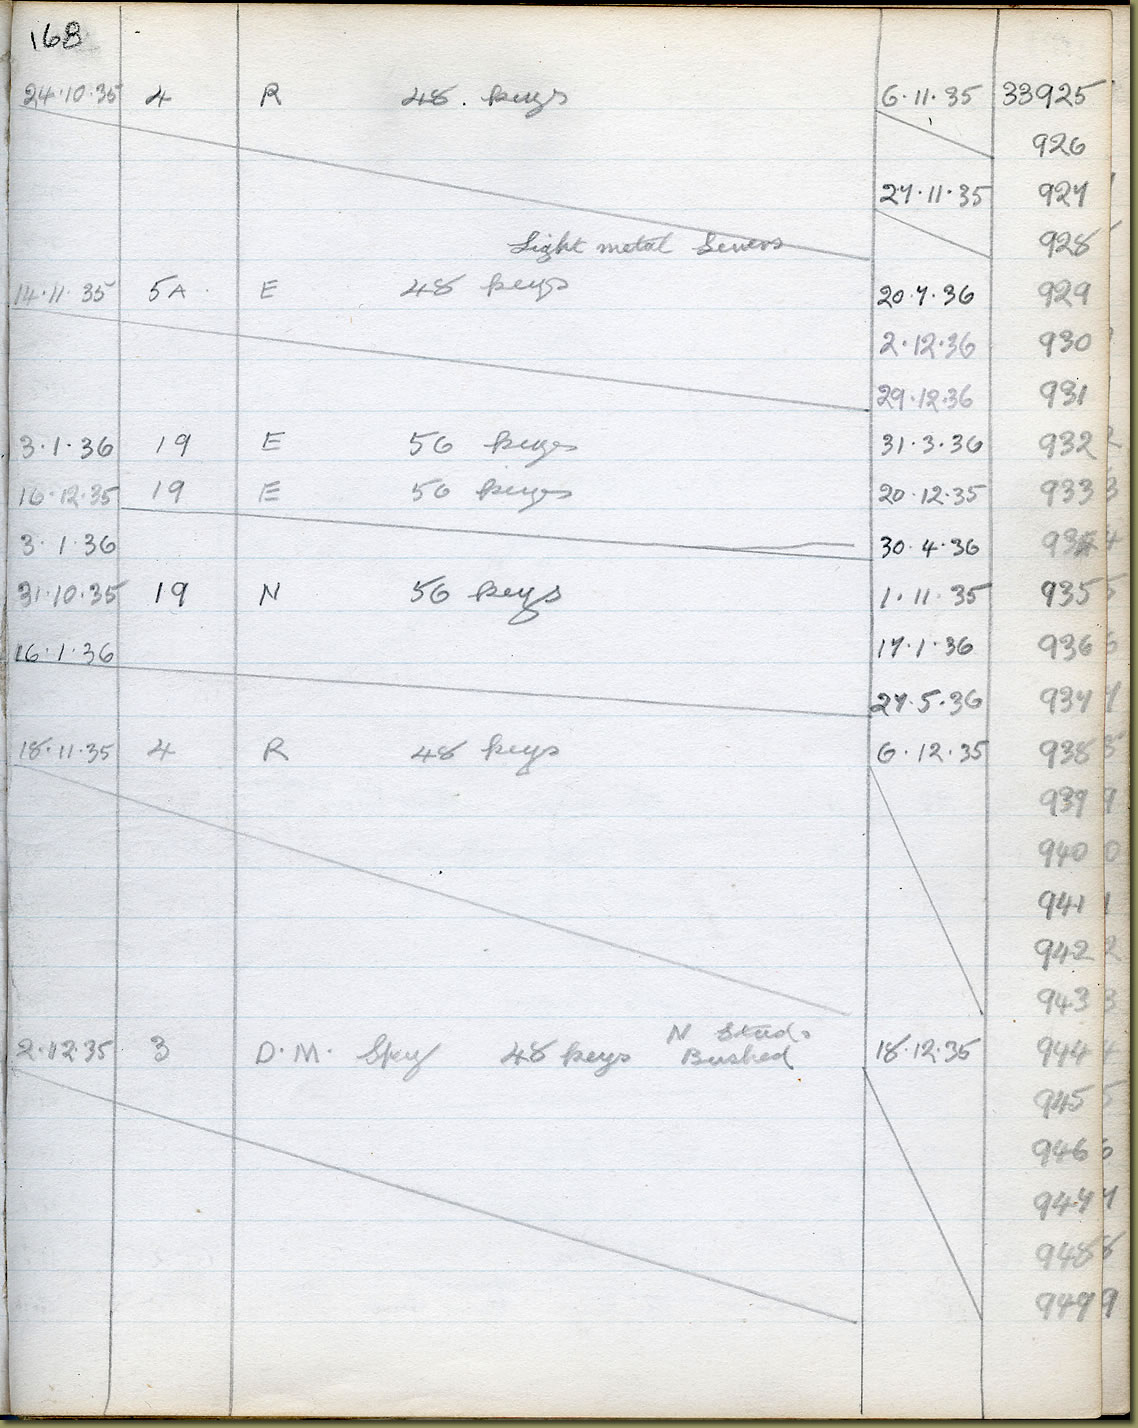 168
24·10·35 4 R 48. keys 6·11·35 33925
926
27·11·35 927
Light metal levers 928
14·11·35 5A. E 48 keys 20·7·36 929
2·12·36 930
29·12·36 931
3·1·36 19 E 56 keys 31·3·36 932
16·12·35 19 E 56 keys 20·12·35 933
3·1·36 30·4·36 934
31·10·35 19 N 56 keys 1·11·35 935
16·1·36 17·1·36 936
27·5·36 937
18·11·35 4 R 48 keys 6·12·35 938
939
940
941
942
943
N Studs
2·12·35 3 D.M. 48 keys Bushed 18·12·35 944
945
946
947
948
949